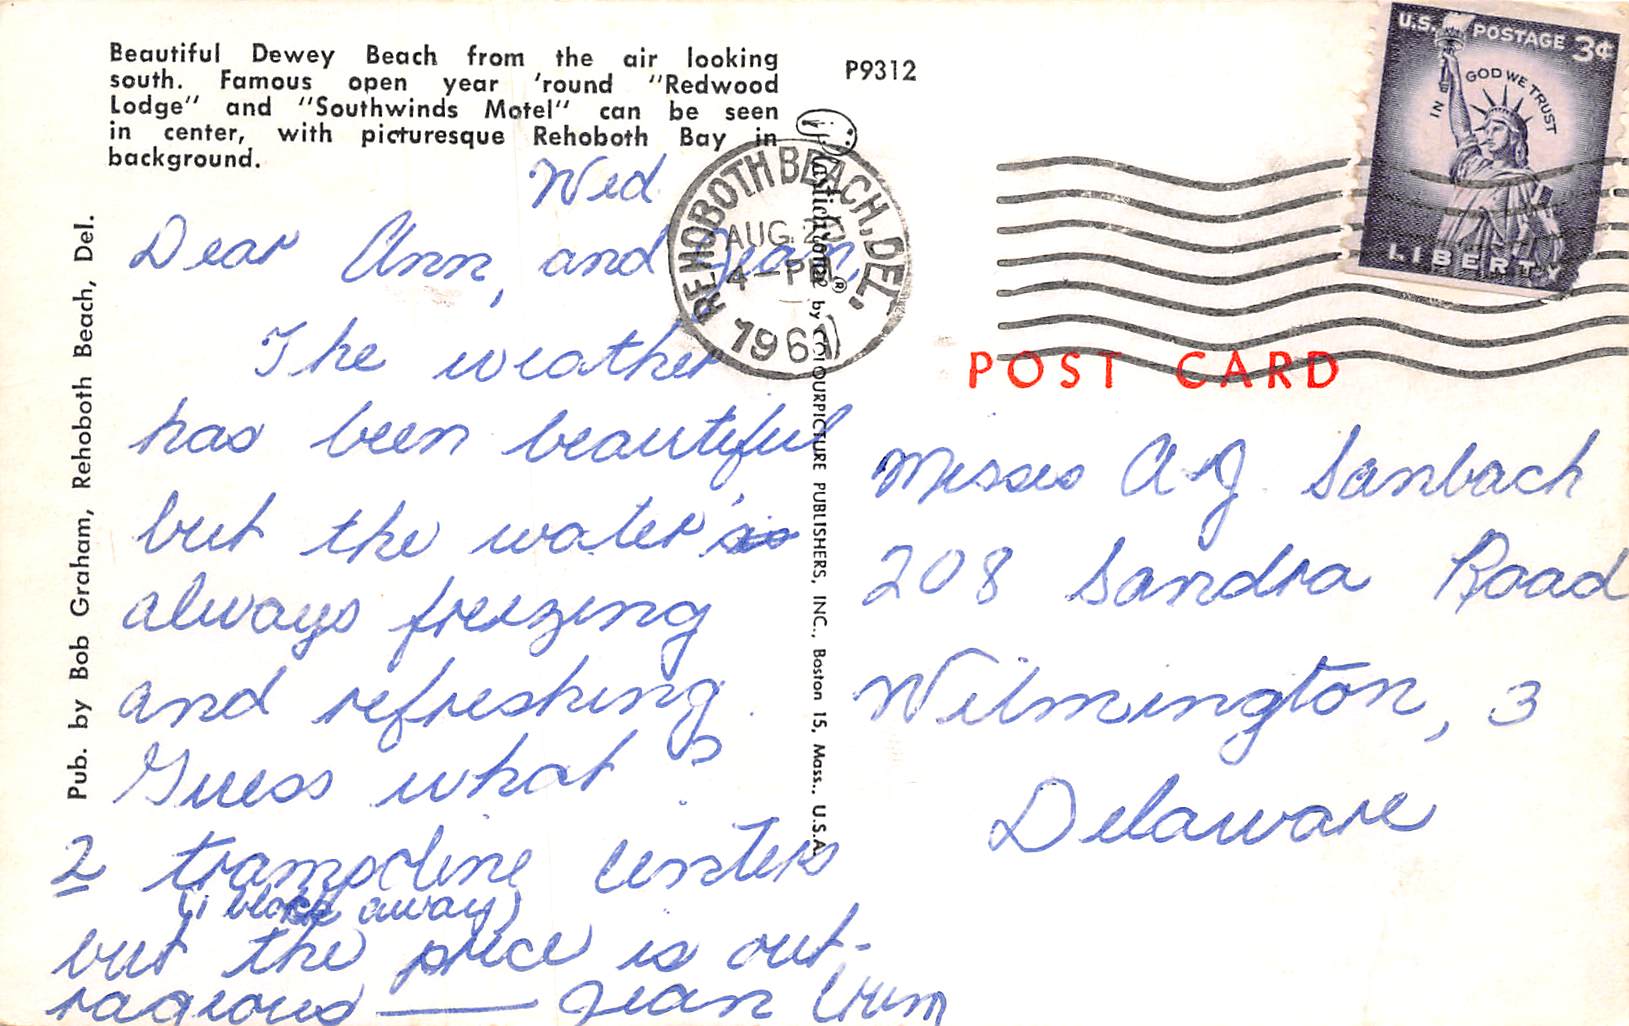 Beautiful Dewey Beach from the air looking
south. Famous open year 'round "Redwood
Lodge" and "Southwinds Motel" can be seen
in center, with picturesque Rehoboth Bay in
background.
P9312
U.S. POSTAGE 3¢
IN GOD WE TRUST
LIBERTY
REHOBOTH BEACH, DEL.
AUG 2
4-PM
1961
POST CARD
Pub. by Bob Graham, Rehoboth Beach, Del.
Plastichrome® by COLOURPICTURE PUBLISHERS, INC., Boston 15, Mass., U.S.A.
Wed
Dear Ann, and Jean,
The weather
has been beautiful
but the water's
always freezing
and refreshing.
Guess what?
2 trampoline centers
(1 block away)
but the price is out-
rageous — Jean
Misses A + J Sanbach
208 Sandra Road
Wilmington, 3
Delaware